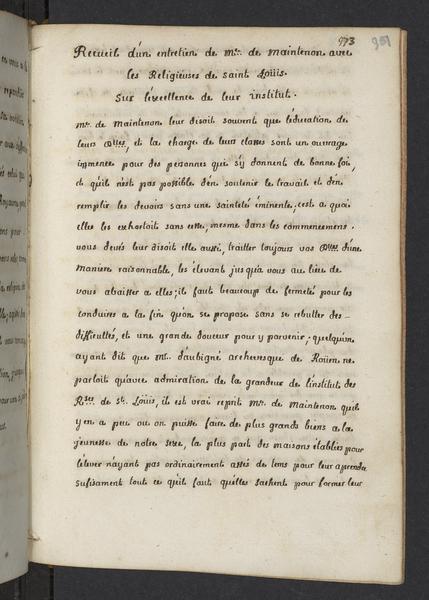 973 951
Recueil d'un entretien de mde. de maintenon avec
les Religieuses de saint Loüis.
Sur l'excellence de leur institut.
mde. de maintenon leur disoit souvent que l'éducation de
leurs Dlles, et la charge de leurs classes sont un ouvrage
immence pour des personnes qui s'y donnent de bonne foi,
et qu'il n'est pas possible d'en soutenir le travail et d'en
remplir les devoirs sans une sainteté éminente; c'est a quoi
elle les exhortoit sans cesse, mesme dans les commencemens.
vous devés leur disoit elle aussi, traitter toujours vos Dlles d'une
maniere raisonnable, les élevant jusqu'a vous au lieu de
vous abaisser a elles; il faut beaucoup de fermeté pour les
conduire a la fin qu'on se propose sans se rebutter des
difficultés, et une grande douceur pour y parvenir. quelqu'un
ayant dit que mr. d'aubigné archevesque de Roüen ne
parloit qu'avec admiration de la grandeur de l'institut des
Rses de st. Loüis, il est vrai reprit mde. de maintenon qu'il
y en a peu ou on puisse faire de plus grands biens a la
jeunesse de notre sexe, la plus part des maisons établies pour
l'élever n'ayant pas ordinairement assés de tems pour leur aprendre
sufisament tout ce qu'il faut qu'elles sachent pour former leur